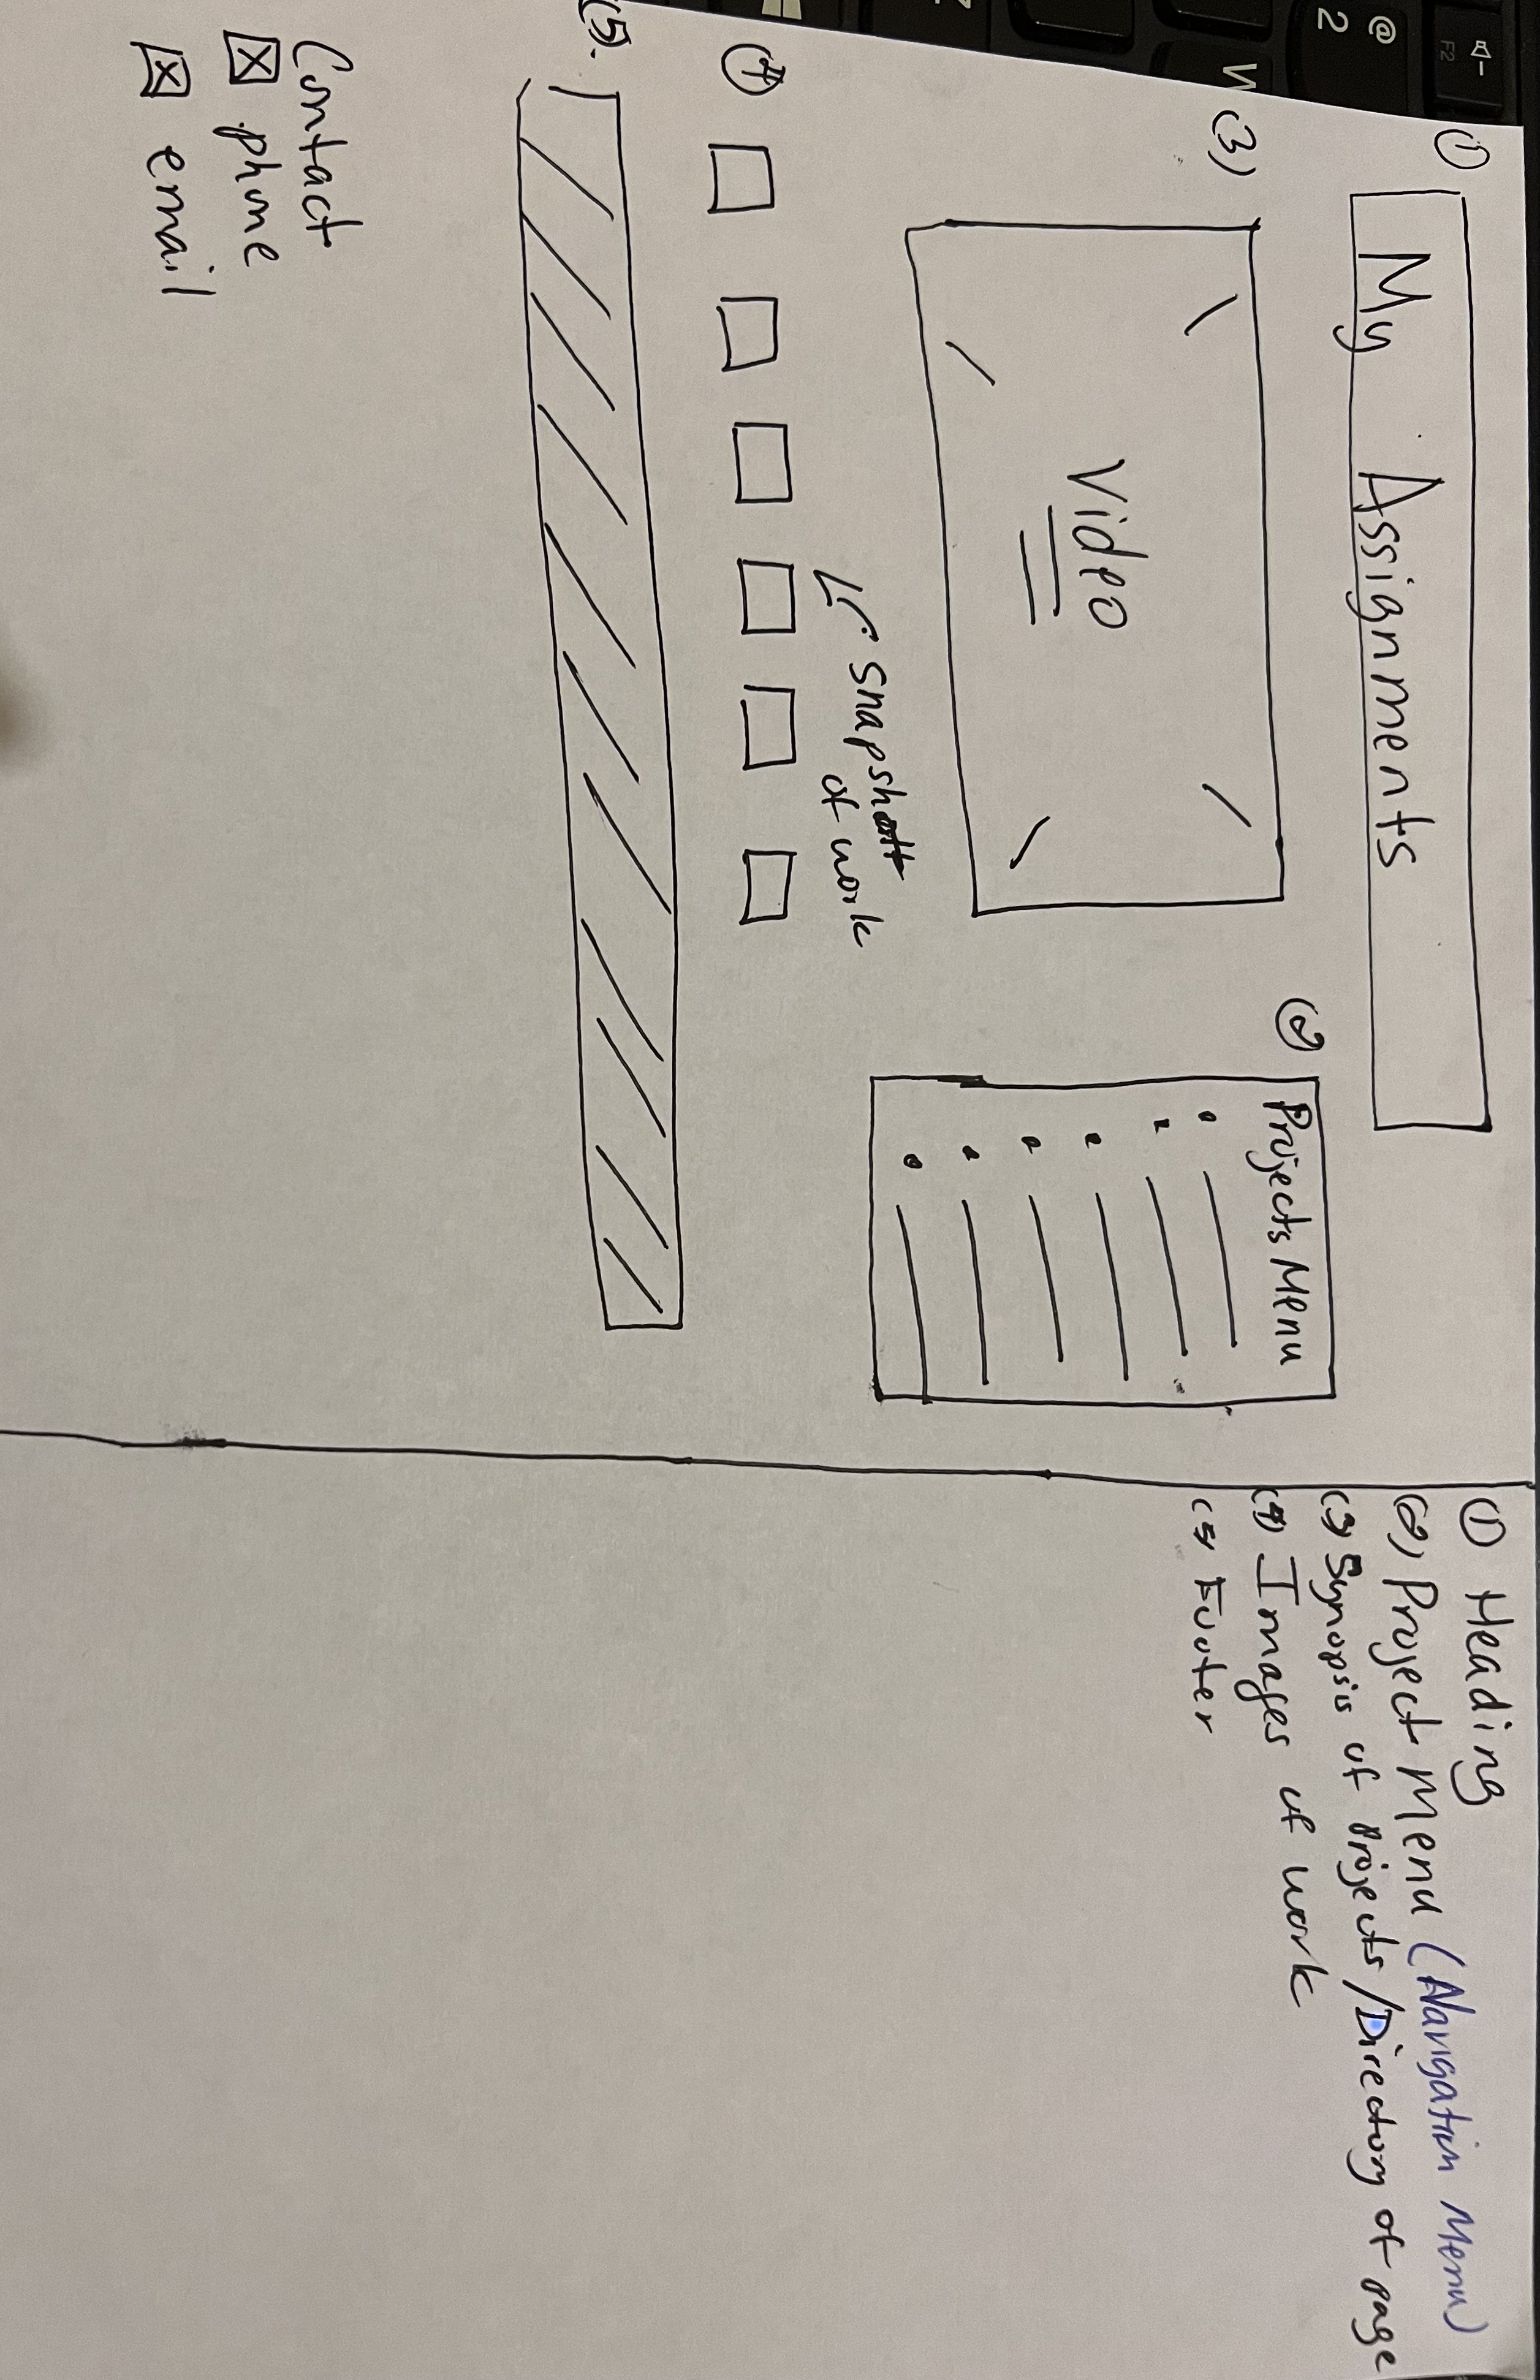 ① My Assignments
② Projects Menu
(3) Video
Snapshott
of work
④
(5).
Contact
phone
email
① Heading
(2) Project Menu (Navigation Menu)
(3) Synopsis of Projects /Directory of page
(4) Images of work
(5) Footer
F2
@
2
W
Z